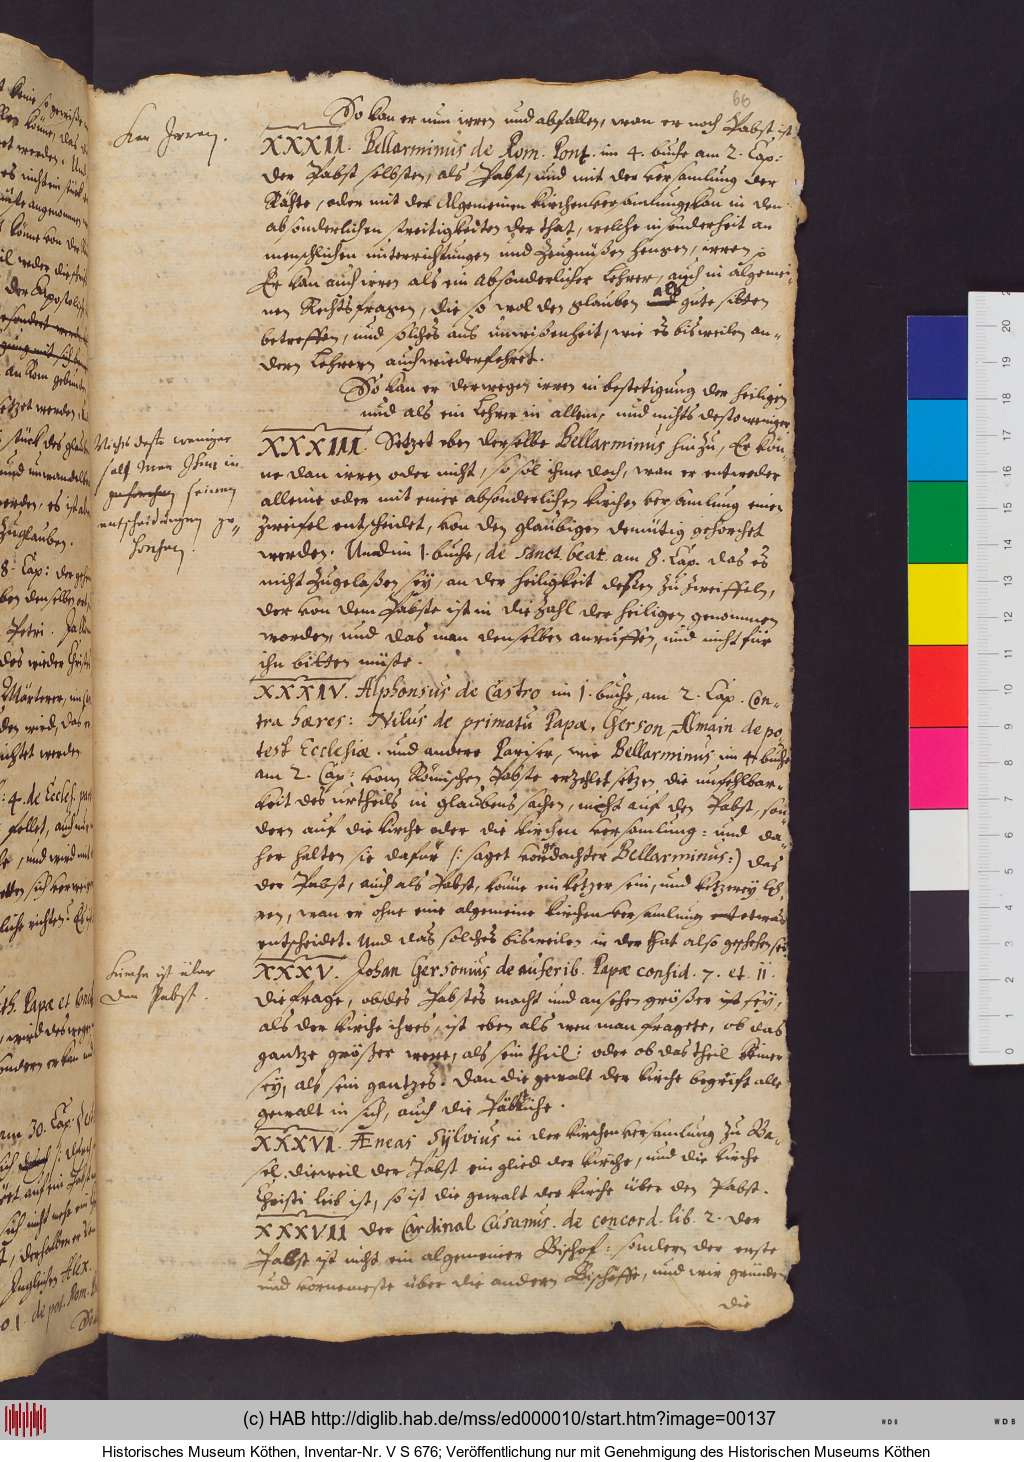 66
So kan er nun irren und abfallen, wan er noch Pabst ist
kan Irren.
XXXII. Bellarminus de Rom. Pont. im 4. buche am 2. Cap:
der Pabst selbsten, als Pabst, und mit der versamlung der
Rähte, oder mit der Algemeinen kirchenversamlung, kan in den
absonderlichen streitigkeiten der that, welche insonderheit an
menschlichen unterrichtungen und Zeugnüßen hengen, irren
Er kan auch irren als ein absonderlicher Lehrer, auch in algemei-
nen Rechtsfragen, die so wol den glauben als gute sitten
betreffen, und solches aus unwißenheit, wie es bisweilen an-
dern Lehrern auch wiederfehret.
So kan er derwegen irren in bestetigung der heiligen
und als ein Lehrer in allem, und nichts destoweniger
Nichts desto weniger
soll man Ihme in
gehorchen seinen
entscheidungen ge-
horchen.
XXXIII. Setzet eben derselbe Bellarminus hinzu, Er kön-
ne dan irren oder nicht, so sol ihme doch, wan er entweder
alleine oder mit einer absonderlichen kirchen versamlung einen
Zweifel entscheidet, von den glaubigen demütig gehorchet
werden. Und im 1. buche, de sanct. beat. am 8. Cap. das es
nicht Zugelaßen sey, an der heiligkeit deßen Zu Zweiffeln,
der von dem Pabste ist in die Zahl der heiligen genommen
worden, und das man denselben anruffen, und nicht für
ihn bitten müße.
XXXIV. Alphonsus de Castro im 1. buche, am 2. Cap. con-
tra hæres: Nilus de primatu Papæ, Gerson, Almain de po-
test. Ecclesiæ. und andere Pariser, wie Bellarminus im 4 buche
am 2. Cap: vom Römischen Pabste erzehlet, setzen die unfehlbar-
keit des urtheils in glaubens sachen, nicht auf den Pabst, son-
dern auf die kirche oder die kirchen versamlung: und da-
her halten sie dafür (: saget vorgedachter Bellarminus:) das
der Pabst, auch als Pabst, könne ein ketzer sein, und ketzerey leh-
ren, wan er ohne eine algemeine kirchen versamlung etwas
entscheidet. Und das solches bisweilen in der that also geschehen sey.
kirche ist über
den Pabst.
XXXV. Johan Gersonius de auferib. Papæ consid. 7. et 11.
die frage, ob des Pabstes macht und ansehen größer sey,
als der kirche ihres, ist eben als wen man fragete, ob das
gantze größer were, als sein theil: oder ob das theil kleiner
sey, als sein gantzes. Dan die gewalt der kirche begreift alle
gewalt in sich, auch die Päbstliche.
XXXVI. Æneas Sylvius in der kirchenversamlung zu Ba-
sel. dieweil der Pabst ein glied der kirche, und die kirche
Christi leib ist, so ist die gewalt der kirche über den Pabst.
XXXVII der Cardinal Cusanus. de concord. lib. 2. der
Pabst ist nicht ein algemeiner Bischof: sondern der erste
und vornemeste über die andern Bischöffe, und wir gründen
die
(c) HAB http://diglib.hab.de/mss/ed000010/start.htm?image=00137
Historisches Museum Köthen, Inventar-Nr. V S 676; Veröffentlichung nur mit Genehmigung des Historischen Museums Köthen